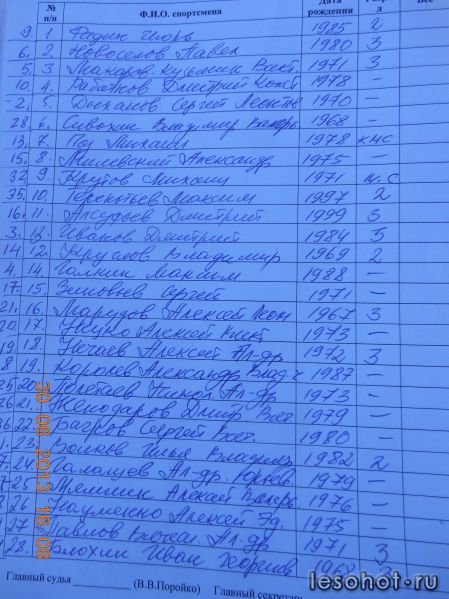 № п/п Ф.И.О. спортсмена Дата рождения
9. 1. Игорь 1985 2
6. 2. Новоселов Павел 1980 3
5. 3. Макаров-Кузьмик Викт. 1971 3
10. 4. Работков Дмитрий Конст 1978 —
2. 5. Дыханов Сергей Леонтьев 1970 —
28. 6. Сивохин Владимир Валерь 1968 —
13. 7. Михаил 1978 кмс
15. 8. Милевский Александр 1975 —
32 9. Крутов Михаил 1971 м.с
35. 10. Терентьев Максим 1997 2
16. 11. Алсуфьев Дмитрий 1999 3
3. 13. Иванов Дмитрий 1984 3
14 12. Круглов Владимир 1969 2
4. 14. Галкин Максим 1988 —
17. 15. Зиновьев Сергей 1971 —
21. 16. Марудов Алексей Леон 1967 3
20 17. Алексей Викт. 1973 —
19. 18. Нечаев Алексей Ал-др. 1972 3
8 19. Королев Александр Влад-ч 1987 —
25 20. Полетаев Никол. Ал-др. 1973 —
26 21. Женодаров Дмитр Вст. 1979 —
22. Багров Сергей Вст. 1980 —
23. Волков Илья Владимир 1982 2
24. Галашев Ал-др. Юрьев. 1979 —
25 Алексей Валерь. 1976 —
26 Науменко Алексей Эд. 1975 —
27 Павлов Ал-др 1971 3
28. Блохин Иван Георгиев 1962 3
30 06 2013 16 08
Главный судья (В.В.Поройко) Главный секретарь
lesohot.ru